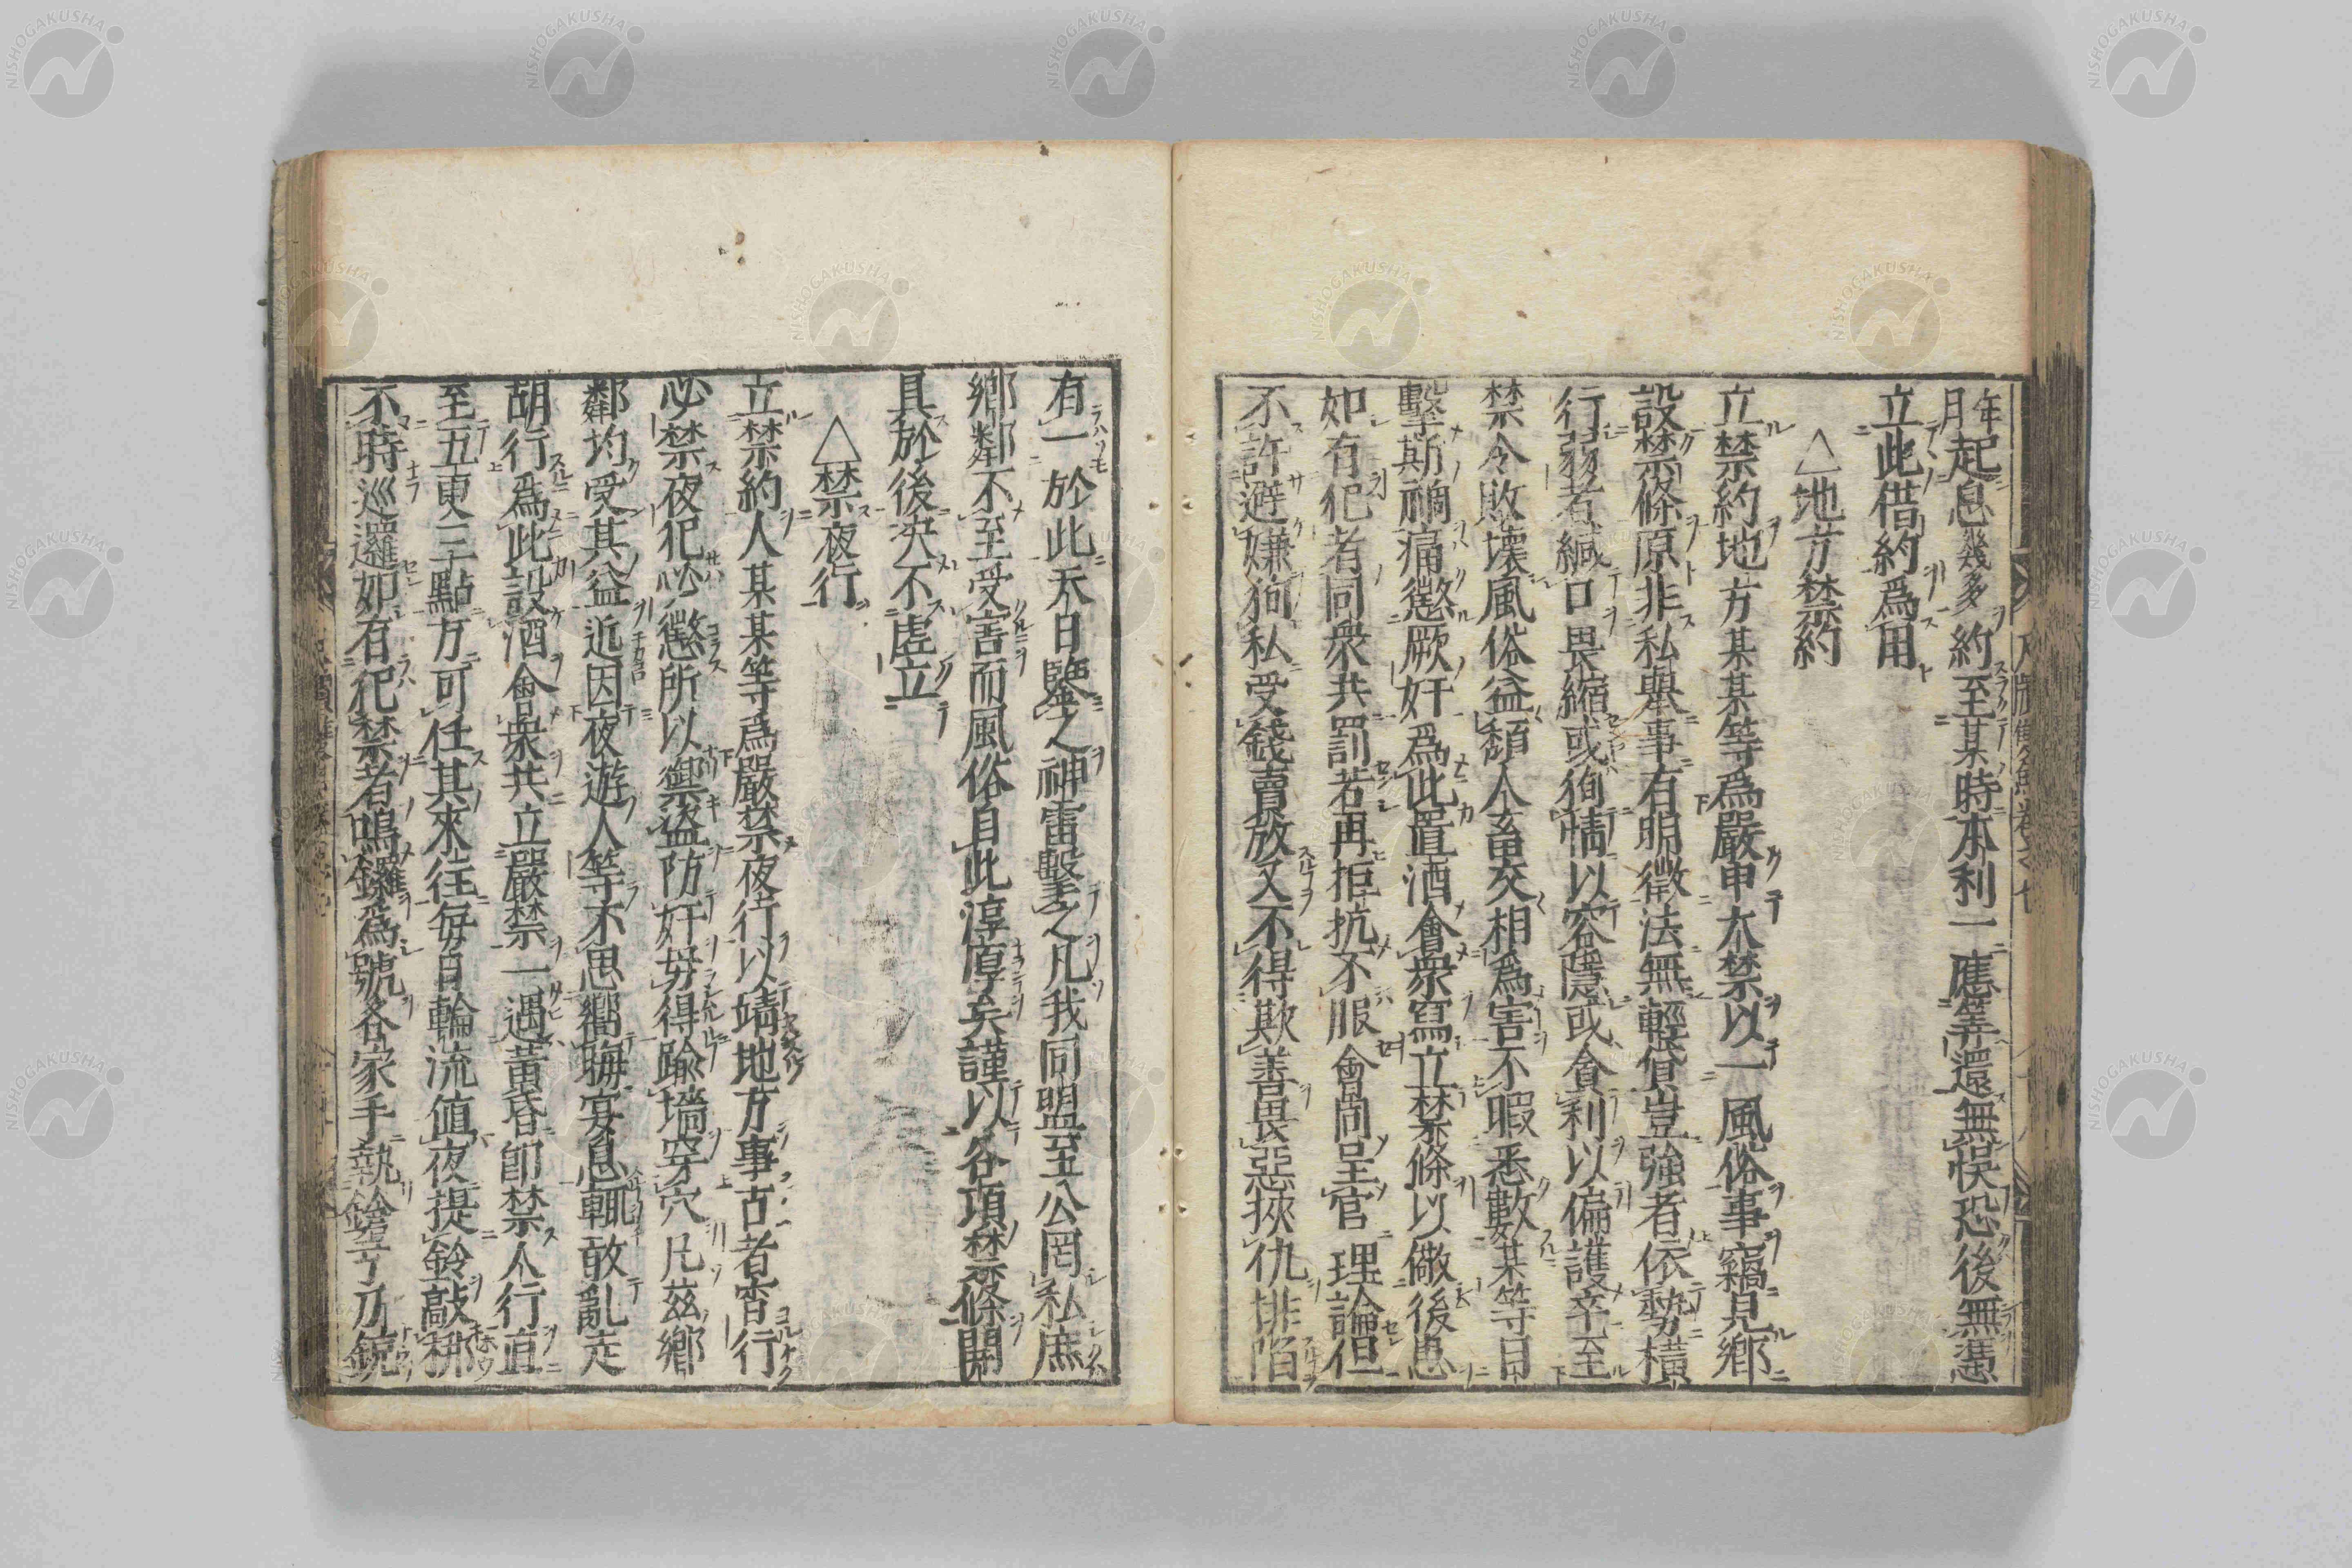 年月起息幾多約至某時本利一應筭還無悞恐後無憑
立此借約爲用
△地方禁約
立禁約地方某某等爲嚴申大禁以一風俗事竊見鄉
設禁條原非私舉事有明徵法無輕貸豈強者依勢橫
行弱者緘口畏縮或徇情以容隱或貪利以偏護卒至
禁令敗壞風俗益頽人畜交相爲害不暇悉數某等目
擊斯禍痛懲厥奸爲此置酒會衆寫立禁條以儆後患
如有犯者同衆共罰若再拒抗不服會同呈官理論但
不許避嫌狥私受錢賣放又不得欺善畏惡挾仇排陷
有一於此天日鑒之神雷擊之凡我同盟至公罔私庶
鄉鄰不至受害而風俗自此淳厚矣謹以各項禁條開
具於後决不虛立
△禁夜行
立禁約人某某等爲嚴禁夜行以靖地方事古者宵行
必禁夜犯必懲所以禦盜防奸毋得踰墻穿穴凡茲鄉
鄰均受其益近因夜遊人等不思嚮晦宴息輒敢亂走
胡行爲此設酒會衆共立嚴禁一遇黃昏卽禁人行直
至五更三點方可任其來往每日輪流値夜提鈴敲梆
不時巡邏如有犯禁者鳴鑼爲號各家手執鎗刀銃
NISHOGAKUSHA